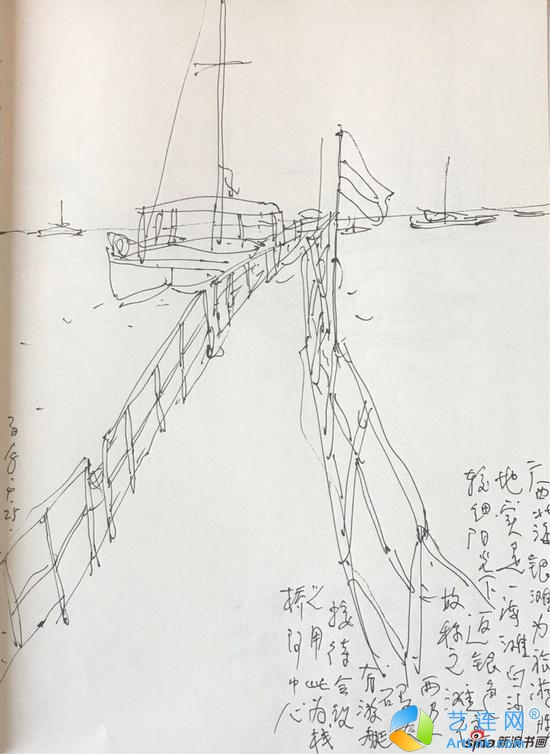 广西北海银滩为旅游胜
地实是一海滩白沙
较细阳光下返银色
故称之滩
有游艇
接待会议
之用此为栈
桥
中心
4.25.
艺连网®
sina新浪书画